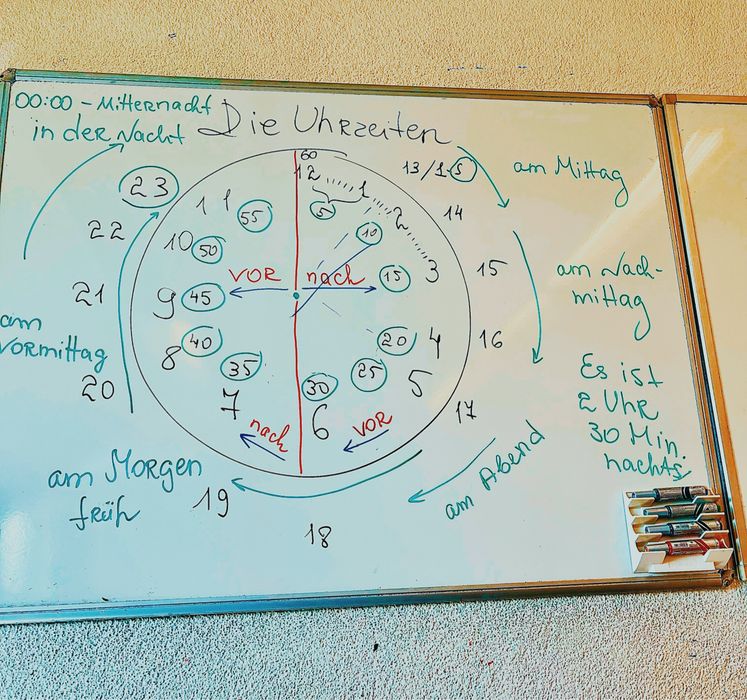 00:00 - Mitternacht
in der Nacht
Die Uhrzeiten
60
12
13/1
5
am Mittag
23
11
55
5
1
2
14
22
10
50
10
am Nach-
mittag
VOR
nach
15
3
15
21
9
45
am
VORmittag
8
40
20
4
16
20
35
30
25
5
Es ist
2 Uhr
30 Min.
nachts
7
6
17
nach
VOR
am Morgen
früh
19
18
am Abend